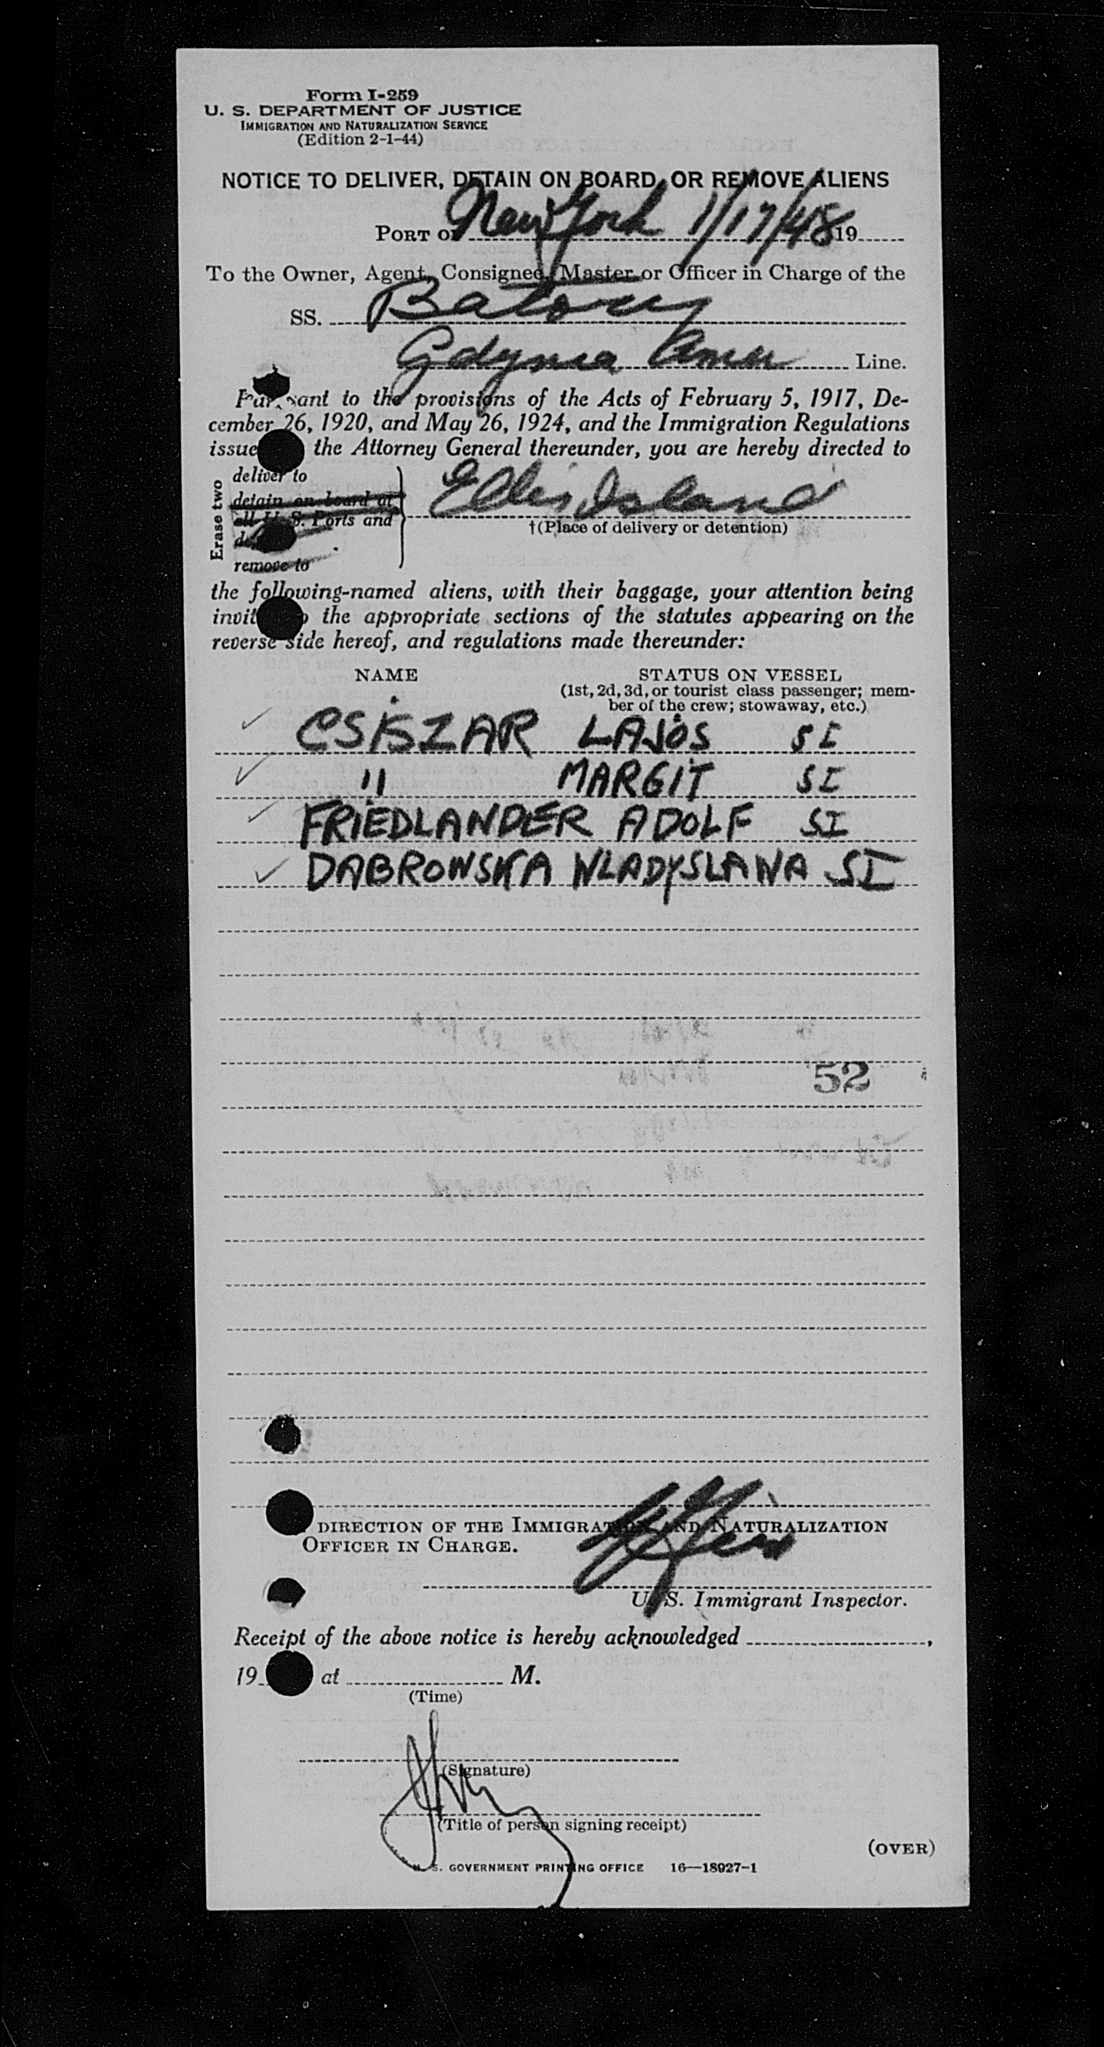 Form I-259
U. S. DEPARTMENT OF JUSTICE
IMMIGRATION AND NATURALIZATION SERVICE
(Edition 2-1-44)
NOTICE TO DELIVER, DETAIN ON BOARD, OR REMOVE ALIENS
PORT OF New York 1/17/48 19
To the Owner, Agent, Consignee, Master or Officer in Charge of the
SS. Batory
Gdynia Amer Line.
Pursuant to the provisions of the Acts of February 5, 1917, De-
cember 26, 1920, and May 26, 1924, and the Immigration Regulations
issue the Attorney General thereunder, you are hereby directed to
Erase two
deliver to
detain on board at
all U. S. Ports and
de
remove to
Ellis Island
†(Place of delivery or detention)
the following-named aliens, with their baggage, your attention being
invit the appropriate sections of the statutes appearing on the
reverse side hereof, and regulations made thereunder:
NAME STATUS ON VESSEL
(1st, 2d, 3d, or tourist class passenger; mem-
ber of the crew; stowaway, etc.)
✓ CSISZAR LAJOS SI
✓ " MARGIT SI
✓ FRIEDLANDER ADOLF SI
✓ DABROWSKA WLADYSLAWA SI
52
DIRECTION OF THE IMMIGRATION AND NATURALIZATION
OFFICER IN CHARGE.
U. S. Immigrant Inspector.
Receipt of the above notice is hereby acknowledged ,
19 at M.
(Time)
(Signature)
(Title of person signing receipt)
(OVER)
U. S. GOVERNMENT PRINTING OFFICE 16—18927-1